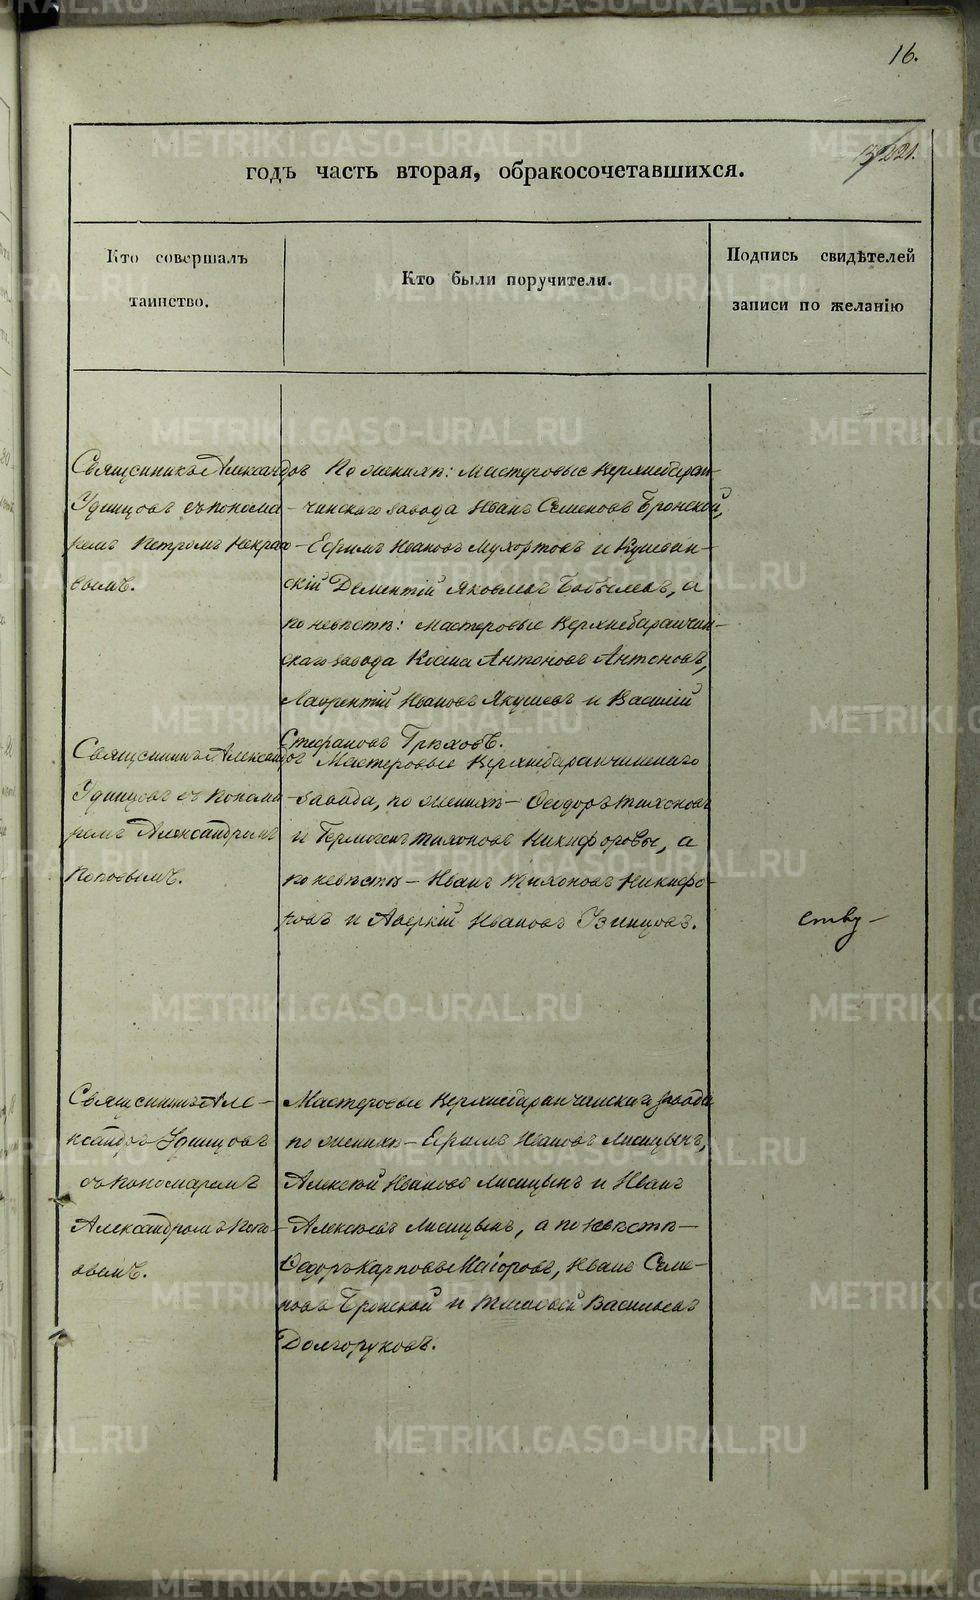 16.
годъ часть вторая, обракосочетавшихся.
Кто совершалъ
таинство.
Кто были поручители.
Подпись свидѣтелей
записи по желанію
Священникъ Александръ
Удинцовъ съ понома
ремъ Петромъ Некрасо
вымъ.
По женихѣ: Мастеровые Верхнебаран-
чинскаго завода Иванъ Семеновъ Бронской,
Ефимъ Ивановъ Мухортовъ и Кушвин-
скій Дементій Яковлевъ Бабылевъ, а
по невѣстѣ: мастеровые Верхнебаранчин-
скаго завода Косма Антоновъ Антоновъ,
Лаврентій Ивановъ Якушевъ и Василій
Стефановъ Грѣховъ.
Священникъ Александръ
Удинцовъ съ понома
ремъ Александромъ
Поповымъ.
Мастеровые Верхнебаранчинскаго
завода, по женихѣ — Ѳеодоръ Тихоновъ
и Гермогенъ Тихоновъ Никифоровы, а
по невѣстѣ — Иванъ Тихоновъ Никифо-
ровъ и Аверкій Ивановъ
ству —
Священникъ Але-
ксандръ Удинцовъ
съ пономаремъ
Александромъ Попо-
вымъ.
Мастеровые Верхнебаранчинскаго завода
по женихѣ — Ефимъ Ивановъ Лисицынъ,
Алексѣй Ивановъ Лисицынъ и Иванъ
Алексѣевъ Лисицынъ, а по невѣстѣ —
Ѳедоръ Карповъ Маіоровъ, Иванъ Семе-
новъ Бронской и Тимоѳей Васильевъ
Долгоруковъ.
METRIKI.GASO-URAL.RU